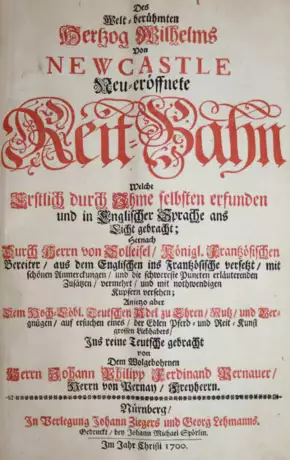 Des
Welt-berühmten
Hertzog Wilhelms
Von
NEWCASTLE
Neu-eröffnete
Reit-Bahn
Welche
Erstlich durch Ihme selbsten erfunden
und in Englischer Sprache ans
Licht gebracht;
Hernach
Durch Herrn von Solleisel / Königl. Frantzösischen
Bereiter / aus dem Englischen ins Frantzösische versetzt / mit
schönen Anmerckungen / und die schwereste Puncten erläuterenden
Zusätzen / vermehret / und mit nothwendigen
Kupfern versehen;
Anietzo aber
Dem Hoch-Löbl. Teutschen Adel zu Ehren / Nutz / und Ver-
gnügen / auf ersuchen eines / der Edlen Pferd- und Reit-Kunst
grossen Liebhabers /
Ins reine Teutsche gebracht
von
Dem Wolgebohrnen
Herrn Johann Philipp Ferdinand Pernauer /
Herrn von Pernay / Freyherrn.
Nürnberg /
In Verlegung Johann Ziegers und Georg Lehmanns.
Gedruckt / bey Johann Michael Spörlin.
Im Jahr Christi 1700.